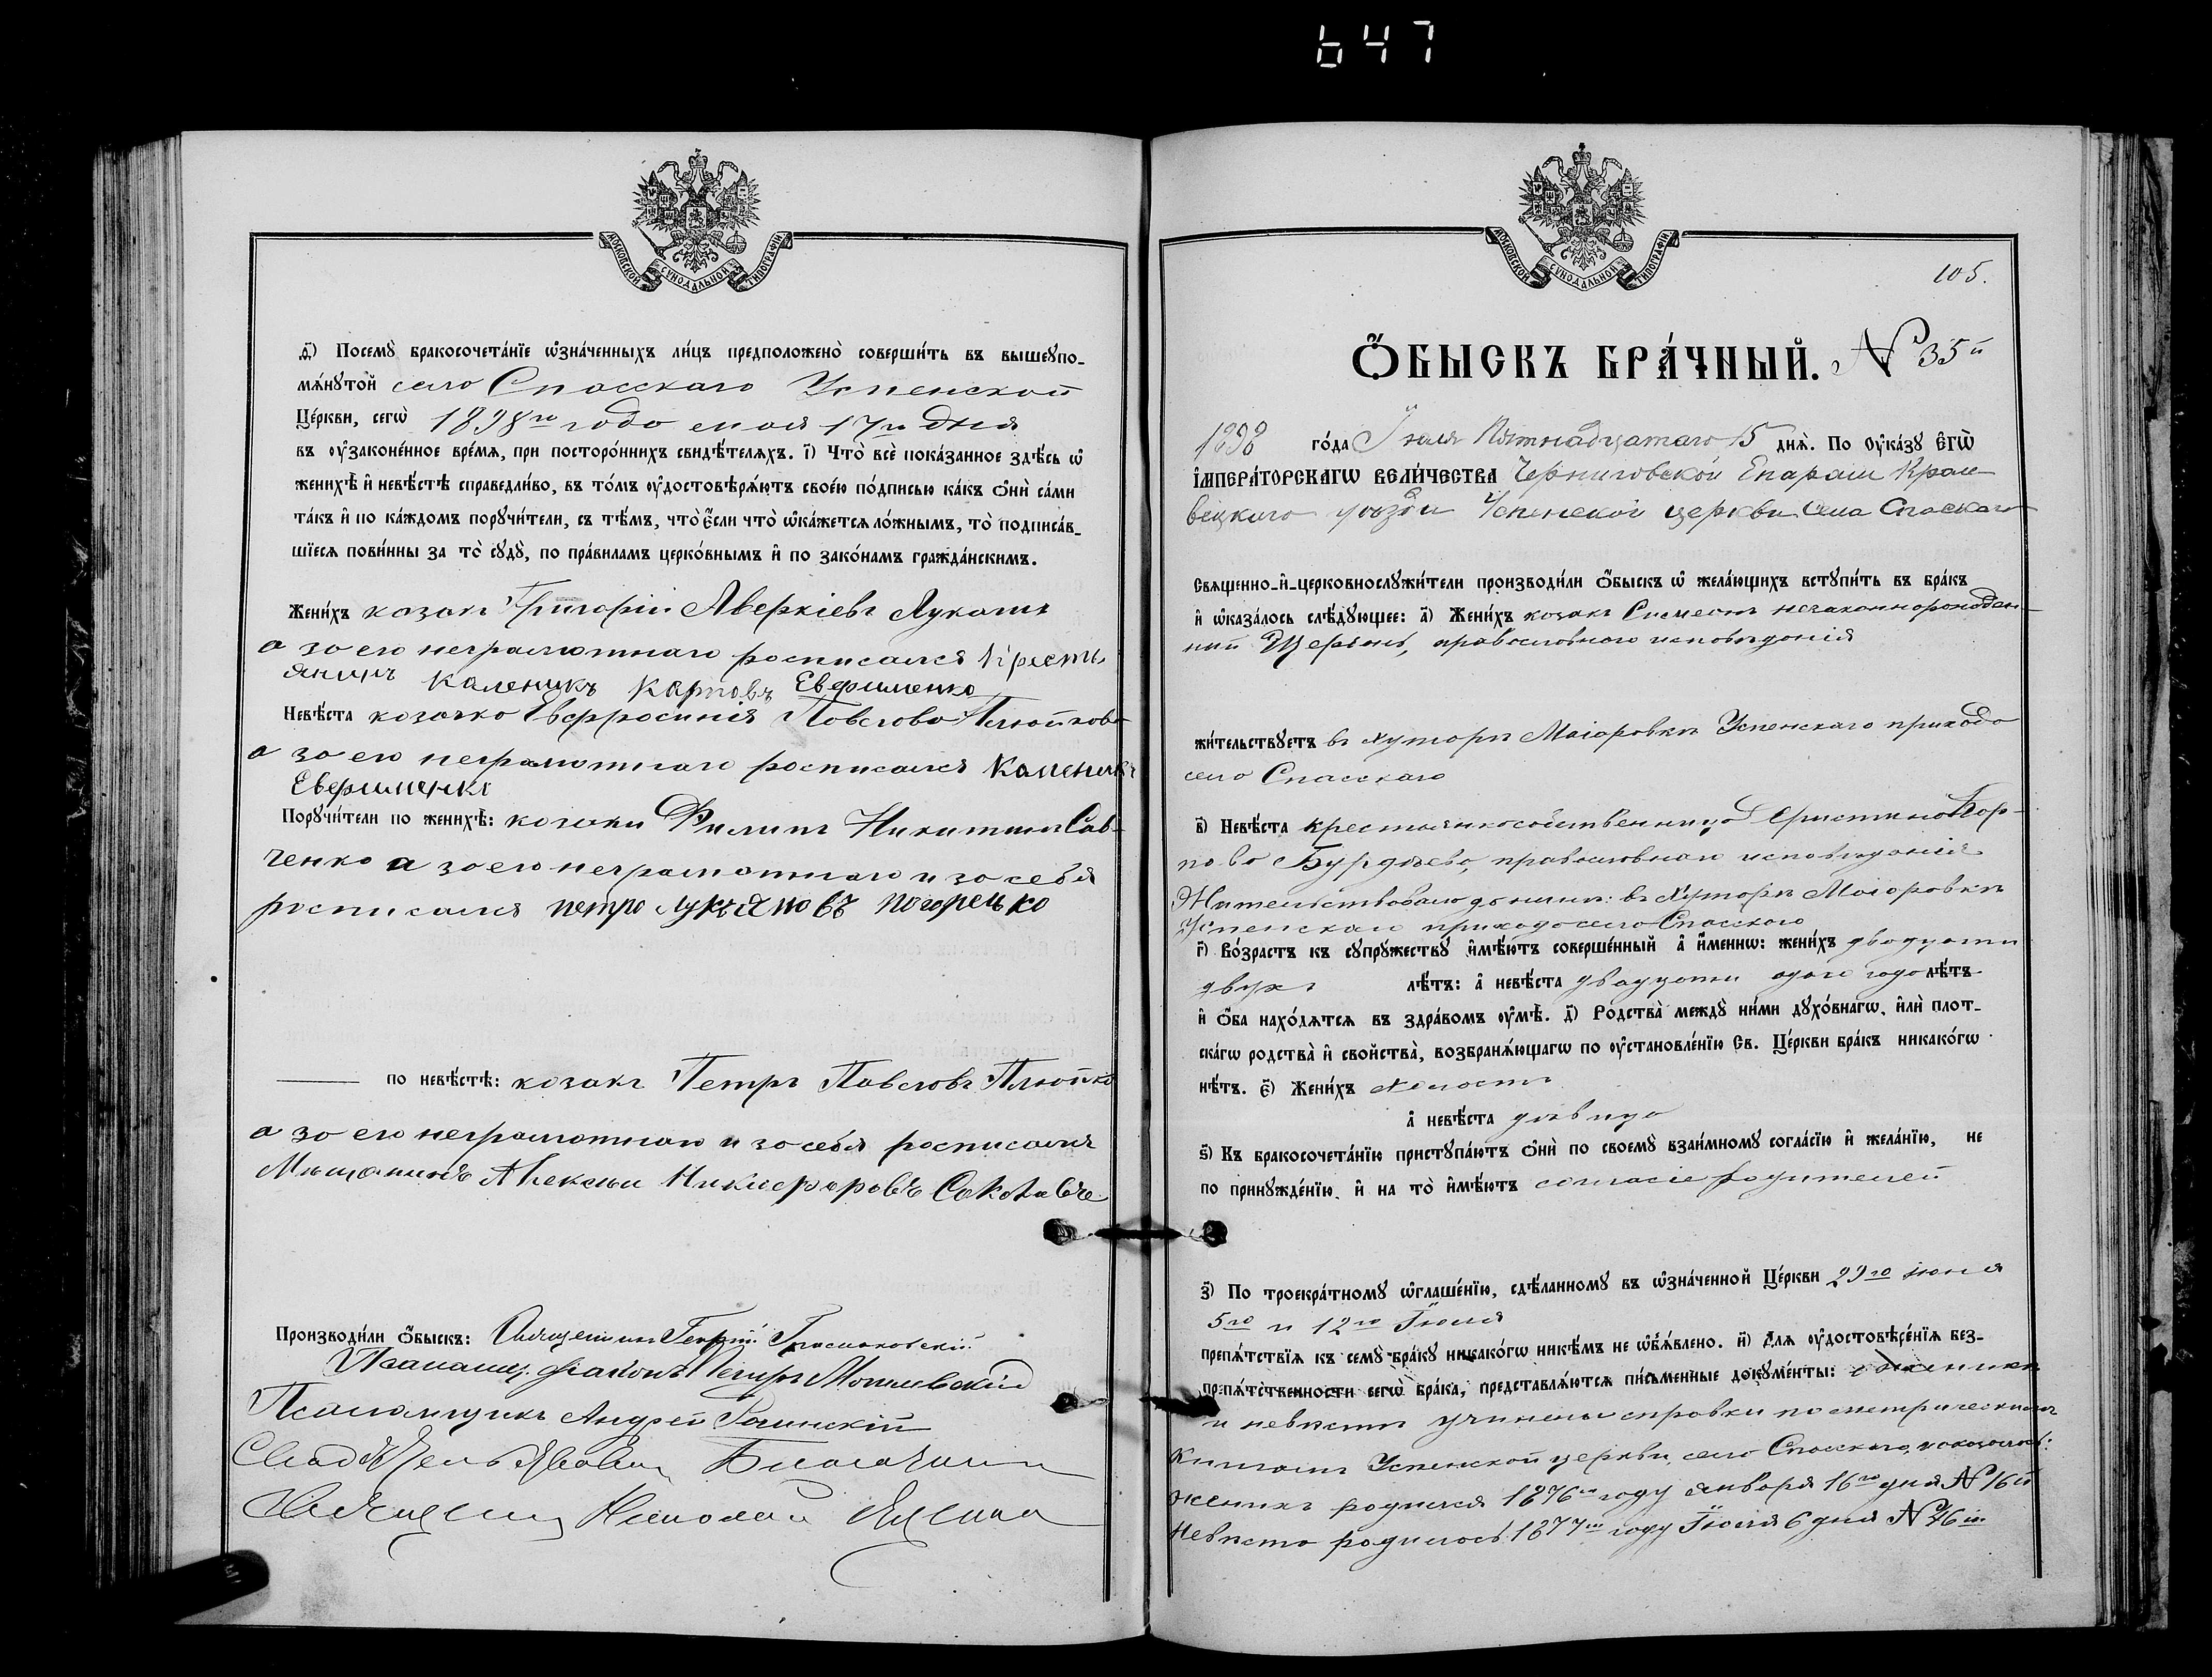 647
МОСКОВСКОЙ СѴНОДАЛЬНОЙ ТИПОГРАФІИ
ѳ҃) Посемꙋ̀ бракосочета́нїе ѡ҆зна́ченныхъ ли́цъ предположено̀ соверши́ть въ вышеꙋпо-
мѧ́нꙋтой село Спасскаго Успенской
Це́ркви, сегѡ̀ 1898го года июля 17го дня
въ ᲂу҆законе́нное вре́мѧ, при посторо́ннихъ свидѣ́телѧхъ. і҃) Что̀ всѐ пока́занное здѣ́сь ѡ҆
женихѣ̀ и҆ невѣ́стѣ справедли́во, въ то́мъ ᲂу҆достовѣрѧ́ютъ свое́ю по́дписью ка́къ ѻ҆нѝ са́ми
та́къ и҆ по ка́ждомъ порꙋчи́тели, съ тѣ́мъ, что̀ є҆́сли что̀ ѡ҆ка́жетсѧ ло́жнымъ, то̀ подписа́в-
шїесѧ пови́нны за то̀ сꙋдꙋ̀, по пра́виламъ церко́внымъ и҆ по зако́намъ гражда́нскимъ.
Жени́хъ козакъ Григорій Аверкіевъ Лукаш
а за его неграмотнаго росписался Кресть
янинъ Каленикъ Карповъ Евфименко
Невѣ́ста козачка Евфросинія Павлова Плюйкова
а за ею неграмотнаго росписался Каленикъ
Евфименко
Порꙋчи́тели по женихѣ̀: козаки Филипъ Никитинъ Сав-
ченко а за его неграмотнаго и за себя
росписался петро лукъяновъ погорелько
по невѣ́стѣ: козакъ Петръ Павловъ Плюйко
а за его неграмотнаго и за себя росписался
Мѣщанинъ Алексѣй Никифоровъ
Производи́ли ѻ҆́быскъ: Священникъ
діаконъ Петръ
Псаломщикъ Андрей
Николай
МОСКОВСКОЙ СѴНОДАЛЬНОЙ ТИПОГРАФІИ
105.
Ѻ҆́БЫСКЪ БРА́ЧНЫЙ. № 35й
1898 го́да Іюля Пятнадцатаго 15 днѧ̀. По ᲂу҆ка́зꙋ Є҆гѡ̀
І҆МПЕРА́ТОРСКАГѠ ВЕЛИ́ЧЕСТВА Черниговской Епархіи Кроле-
вецкаго уѣзда Успенской церкви села Спаскаго
Свѧщенно-и҆-церковнослꙋжи́тели производи́ли ѻ҆́быскъ ѡ҆ жела́ющихъ встꙋпи́ть въ бра́къ
и҆ ѡ҆каза́лось слѣ́дꙋющее: а҃) Жени́хъ козакъ Симеонъ незаконнорожден-
ный православнаго исповѣданія
жи́тельствꙋетъ въ хуторѣ Маіоровкѣ Успенскаго прихода
села Спасскаго
в҃) Невѣ́ста крестьянка собственница Христина Кар-
пова православнаго исповѣданія
Жительствовала донынѣ: въ хуторѣ Маіоровкѣ
Успенскаго прихода села Спасскаго
г҃) Во́зрастъ къ сꙋпрꙋ́жествꙋ и҆мѣ́ютъ соверше́нный а҆ и҆́меннѡ: жени́хъ двадцати
двухъ лѣ́тъ: а҆ невѣ́ста двадцати одного года лѣ́тъ
и҆ ѻ҆́ба нахо́дѧтсѧ въ здра́вомъ ᲂу҆мѣ̀. д҃) Родства̀ междꙋ̀ ни́ми дꙋхо́внагѡ, и҆лѝ плот-
ска́гѡ родства̀ и҆ свойства̀, возбранѧ́ющагѡ по ᲂу҆становле́нїю Св. Це́ркви бра́къ никако́гѡ
нѣ́тъ. є҃) Жени́хъ холостъ
а҆ невѣ́ста дѣвица
ѕ҃) Къ бракосочета́нїю пристꙋпа́ютъ ѻ҆нѝ по своемꙋ̀ взаи́мномꙋ согла́сїю и҆ жела́нїю, не
по принꙋжде́нїю, и҆ на то̀ и҆мѣ́ютъ согласіе родителей
з҃) По троекра́тномꙋ ѡ҆глаше́нїю, сдѣ́ланномꙋ въ ѡ҆зна́ченной Це́ркви 29го іюня
5го и 12го Іюля
препѧ́тствїѧ къ семꙋ̀ бра́кꙋ никако́гѡ никѣ́мъ не ѡ҆б̾ѧ́влено. и҃) Длѧ ᲂу҆достовѣре́нїѧ без-
препѧ́тственности сегѡ̀ бра́ка, представлѧ́ютсѧ пи́сьменные докꙋме́нты: о женихѣ
и невѣстѣ учинены справки по метрическимъ
книгамъ Успенской церкви, села Спасскаго, и оказалось:
женихъ родился 1876го году января 16го дня № 16й
невѣста родилась 1877го году Іюля 6 дня № 46й